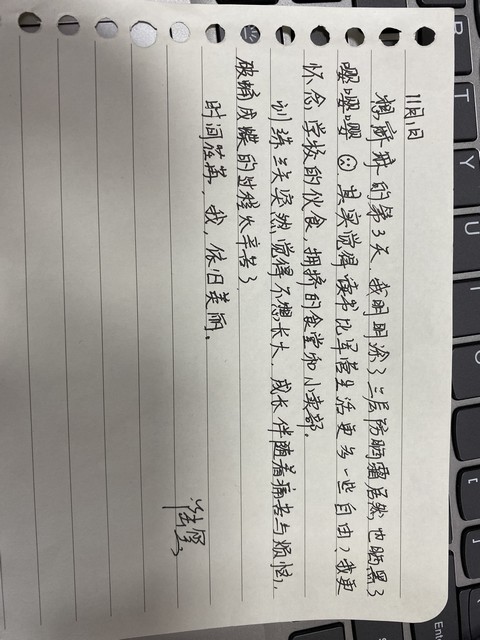 11月1日
想麻麻的第3天,我明明涂了三层防晒霜居然也晒黑了
嘤嘤嘤☹其实觉得读书比军营生活更多一些自由,我更
怀念学校的伙食,拥挤的食堂和小卖部。
训练三天突然觉得不想长大,成长伴随着痛苦与烦恼,
破蛹成蝶的过程太辛苦了
时间荏苒,我,依旧美丽。
R
T
Y
U
Enter